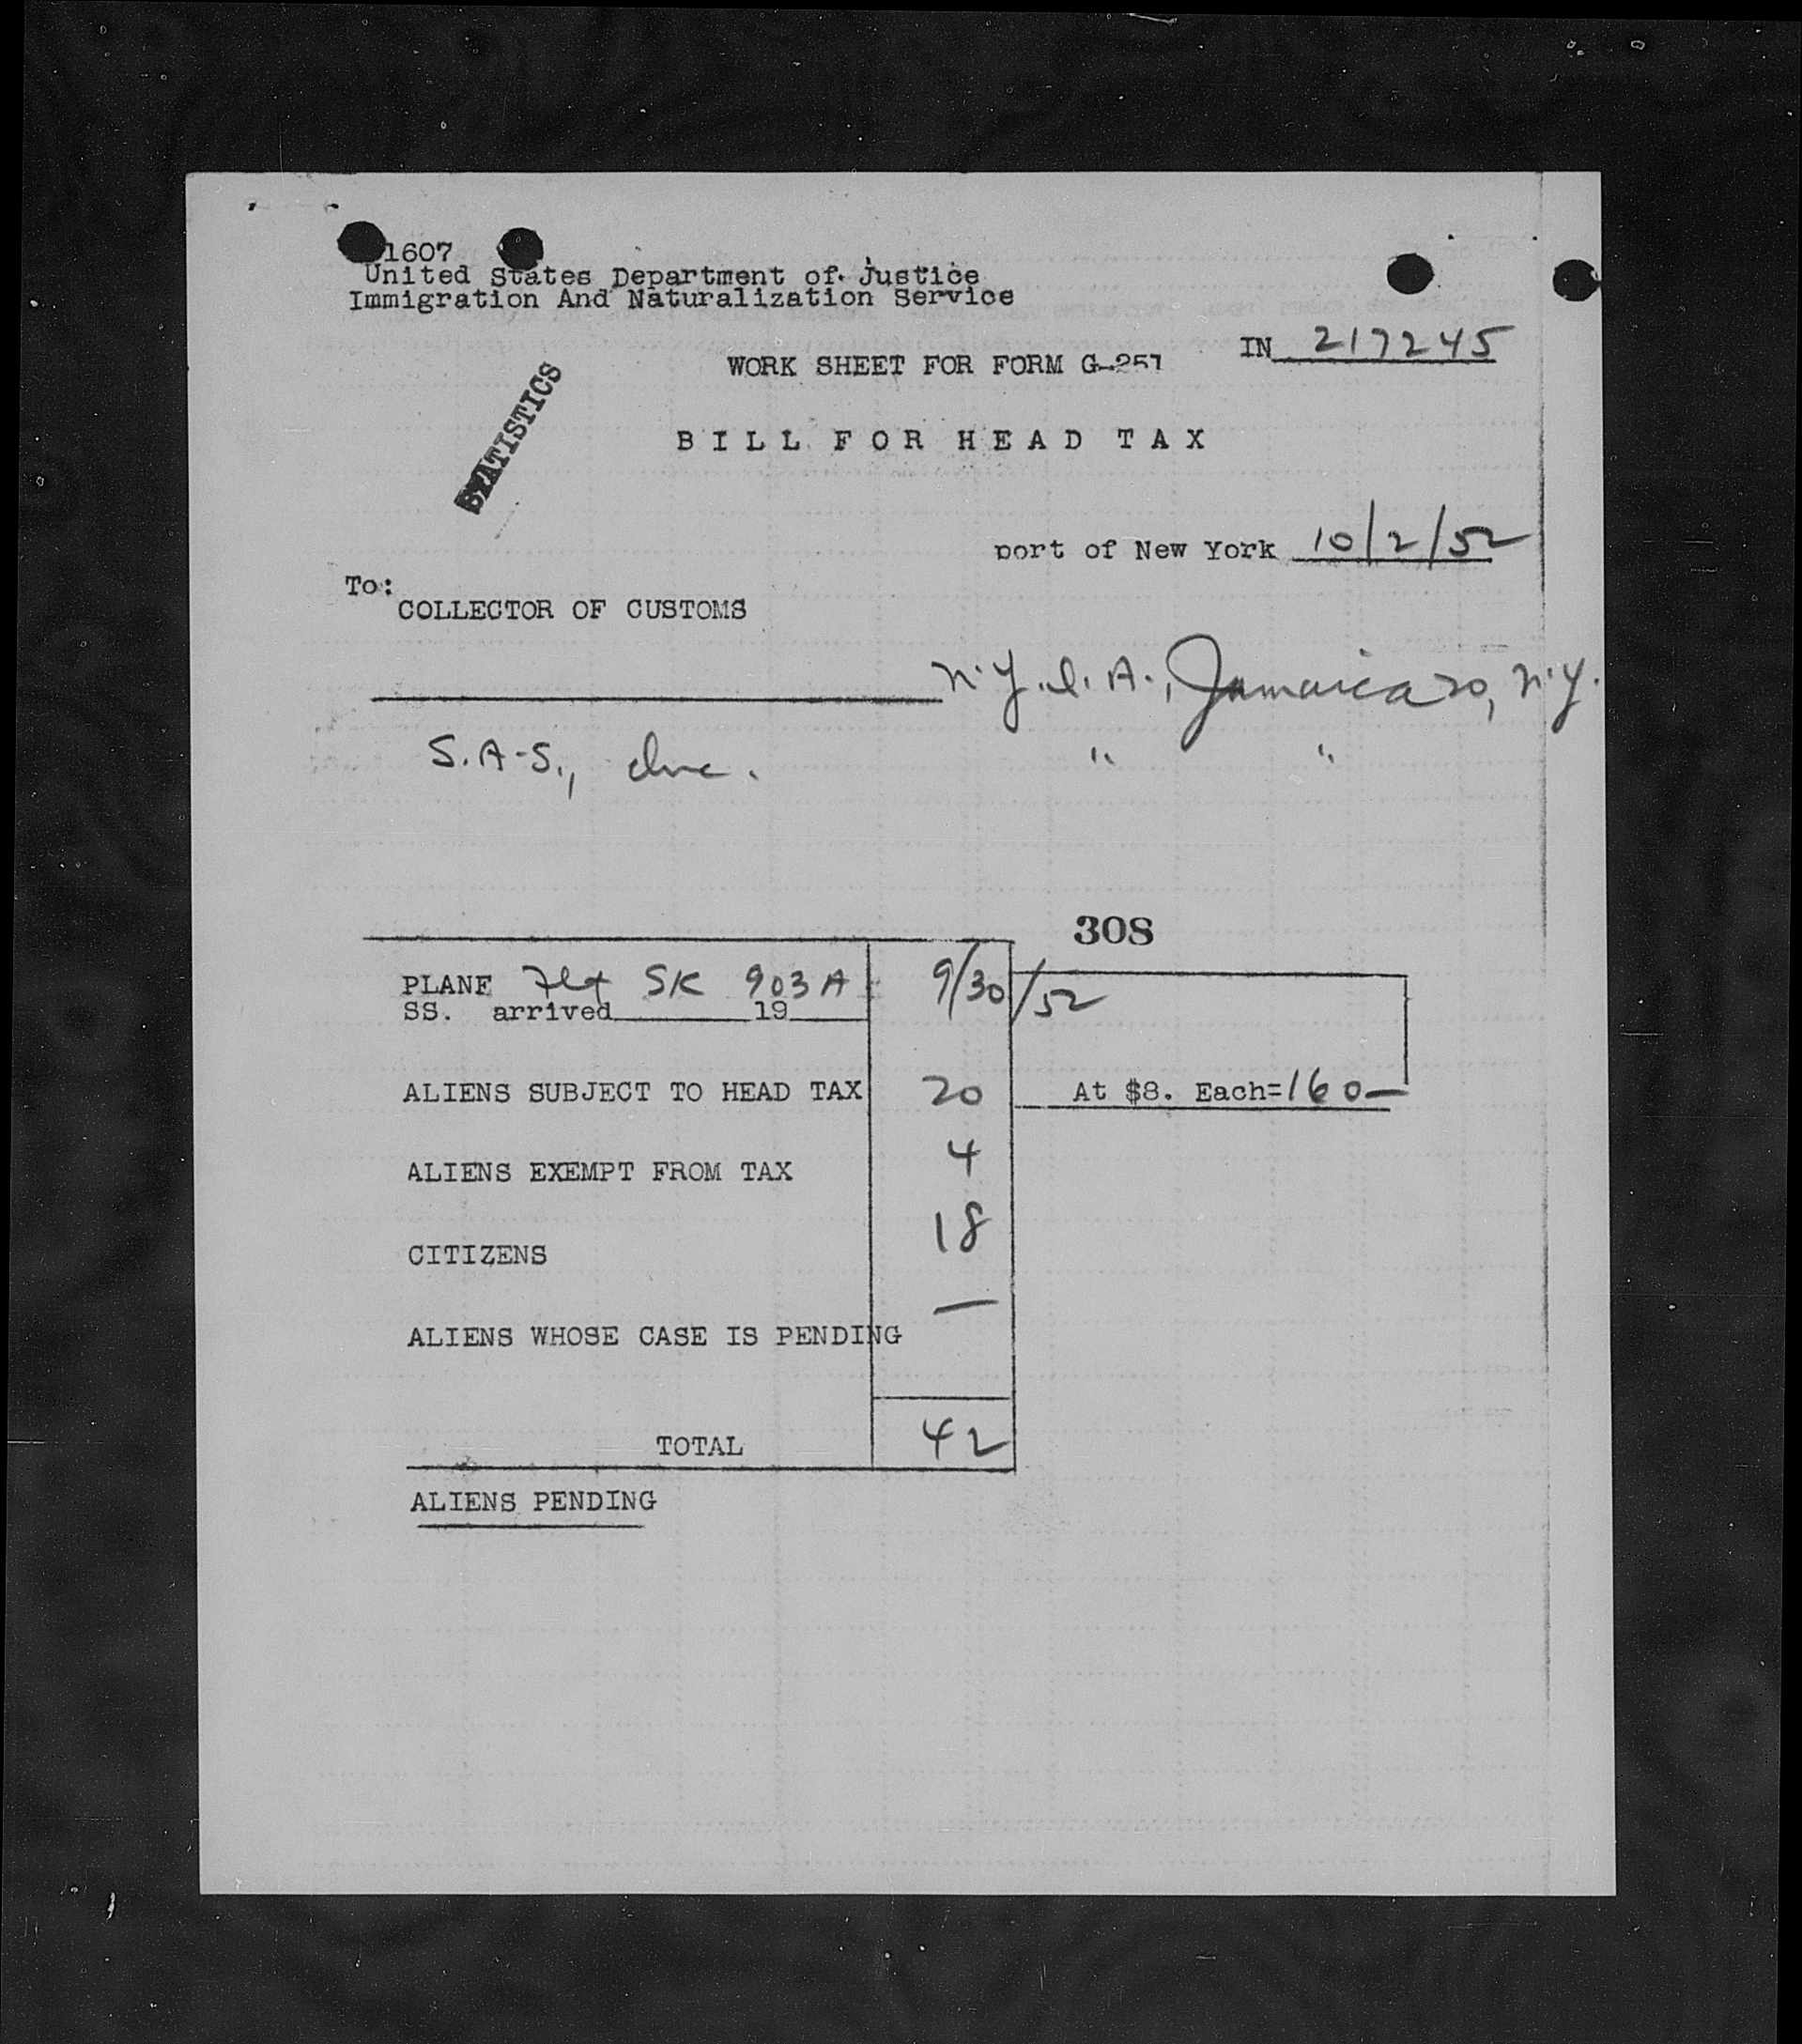 1607
United States Department of Justice
Immigration And Naturalization Service
IN 217245
WORK SHEET FOR FORM G-251
STATISTICS
BILL FOR HEAD TAX
port of New York 10/2/52
To:
COLLECTOR OF CUSTOMS
N.Y.I.A., Jamaica 30, N.Y.
S.A.S., Inc. " "
308
PLANE Flt SK 903A 9/30/52
SS. arrived 19
ALIENS SUBJECT TO HEAD TAX 20 At $8. Each=160—
ALIENS EXEMPT FROM TAX 4
CITIZENS 18
ALIENS WHOSE CASE IS PENDING —
TOTAL 42
ALIENS PENDING